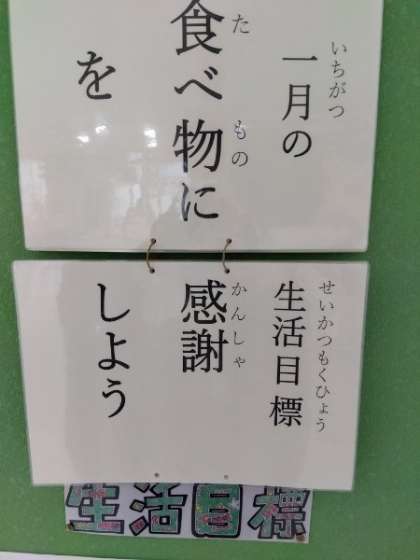 いちがつ せいかつもくひょう
一月の生活目標
た もの かんしゃ
食べ物に感謝
をしよう
生活目標